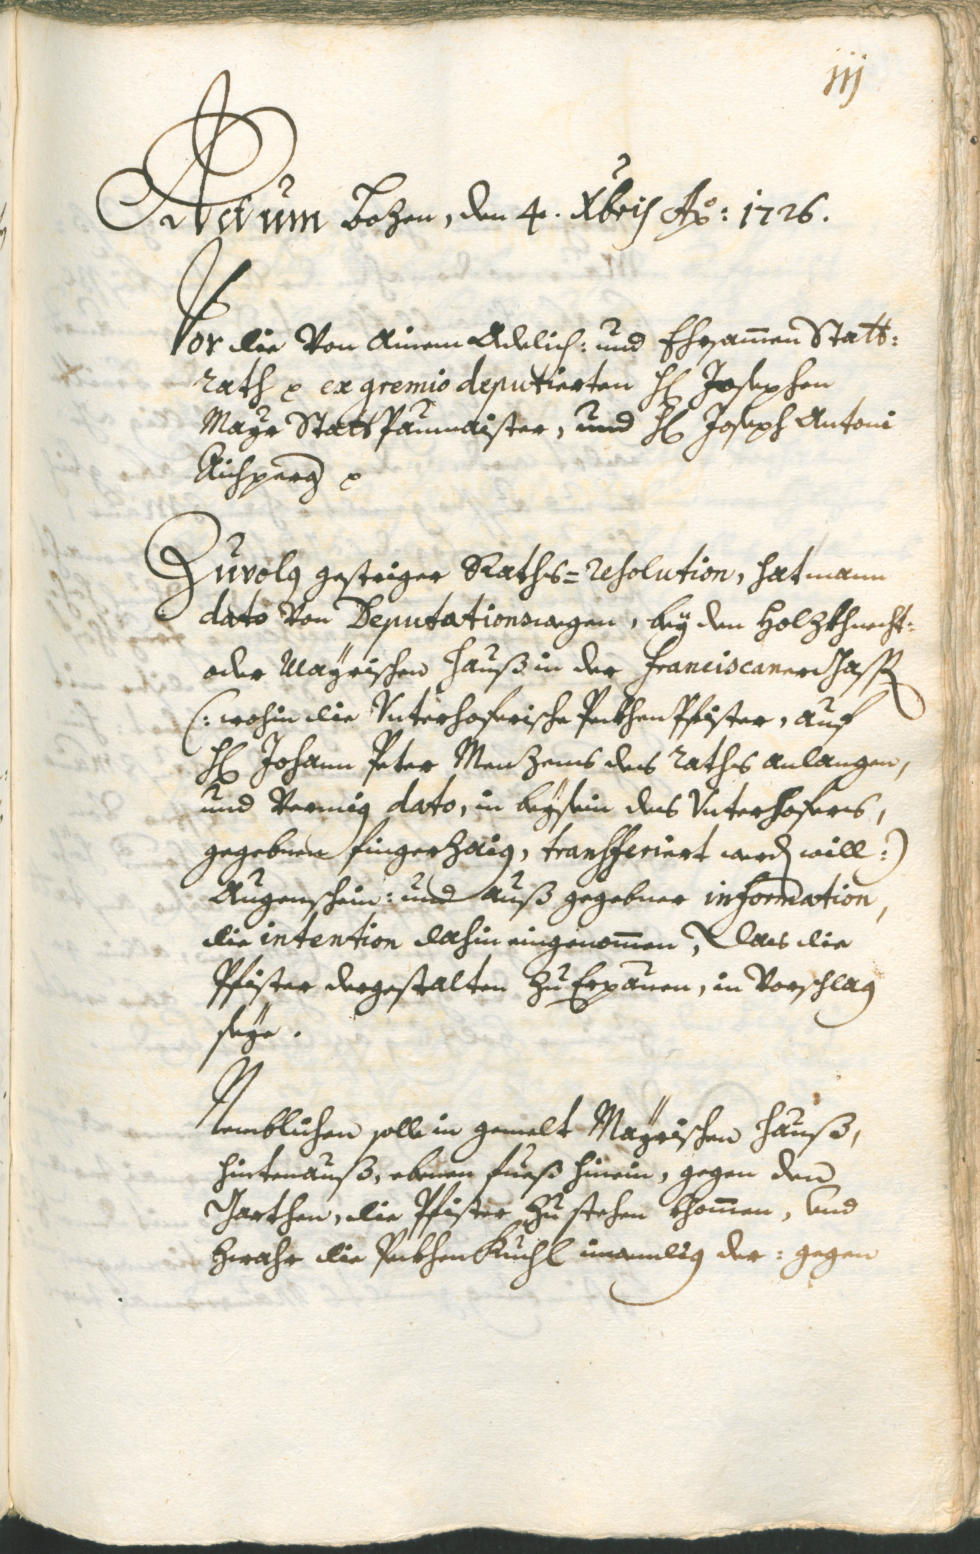 111
Actum Bozen, den 4. Xbris Ao: 1726.
Vor die von Ainem Adelich: und Ehrsamen Statt:
rath p ex gremio deputierten H Josephen
Mayr Statt Paumaister, und H Joseph Antoni
Aichperg p
Zuvolg gestriger Raths=resolution, hat mann
dato von Deputationswegen, bey den Holzkhnecht:
oder Mayrischen Hauß in der Franciscanergaß
(: wohin die Unterhoferische Pekhen Pfister, auf
H Johann Peter Menz ens des raths anlangen,
und vermig dato, in beysein des Unterhofers,
gegebnen fingerzaig, transferiert werd will :)
Augenschein: und auß gegebner information,
die intention dahin eingenommen, das die
Pfister dergestalten zu Erpauen, in Vorschlag
seye.
Nemblichen solle in gemelt Mayrischen Hauß,
hintenauß, ebenen fueß hinein, gegen den
Garthen, die Pfister zu stehen khommen, und
zwahr die Pekhen Kuchl inwendig der: gegen